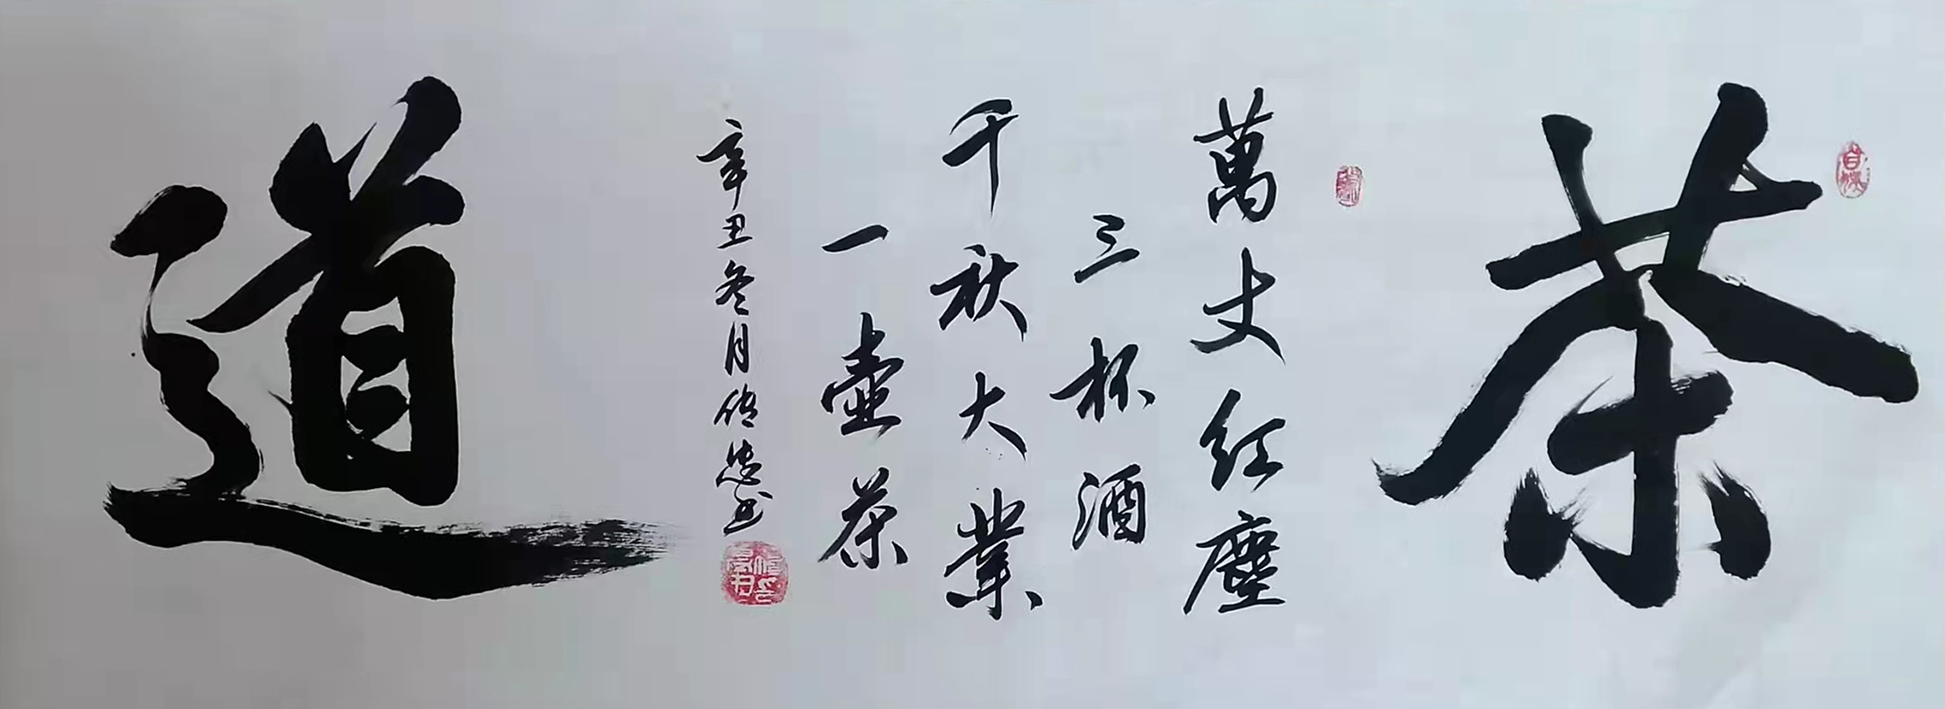 茶
萬丈紅塵
三杯酒
千秋大業
一壺茶
辛丑冬月
道